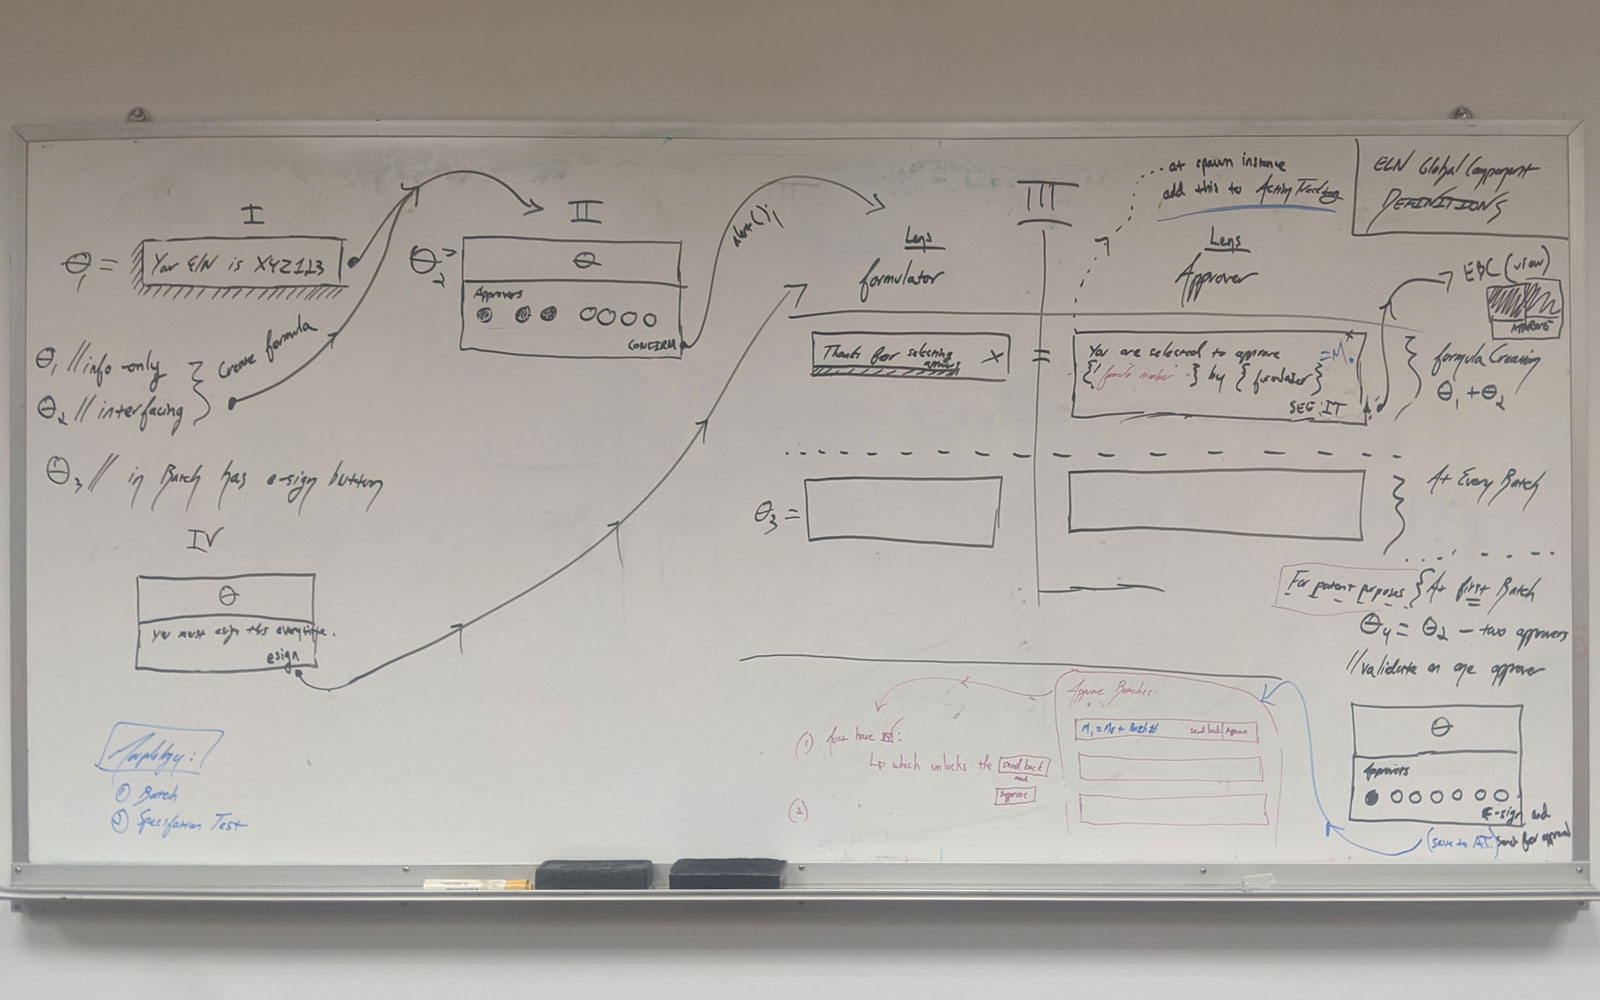 ELN Global Component
DEFINITIONS
at spawn instance
add this to Action Tracking
I
Θ1 =
Your ELN is XYZ123
Θ1 // info-only
Θ2 // interfacing
Create formula
Θ3 // in Batch has e-sign button
II
Θ2 =
Θ
Approvers
CONFIRM
alert();
III
Lens
formulator
Lens
Approver
Thanks for selecting
X
=
You are selected to approve
{formula number} by {formulator}
= M0
x
SEE IT
EBC (view)
APPROVE
formula Creation
Θ1 + Θ2
Θ3 =
At Every Batch
For patent purposes
At first Batch
Θ4 = Θ2 – two approvers
// validate on one approver
IV
Θ
you must esign this everytime.
esign
Morphology:
① Batch
② Specification Test
① Must have :
↳ which unlocks the send back
and
Approve
②
Approve Batches:
M1 = M0 + Batch #
send back | Approve
Θ
Approvers
E-sign and
send for approval
(save to A.T.)